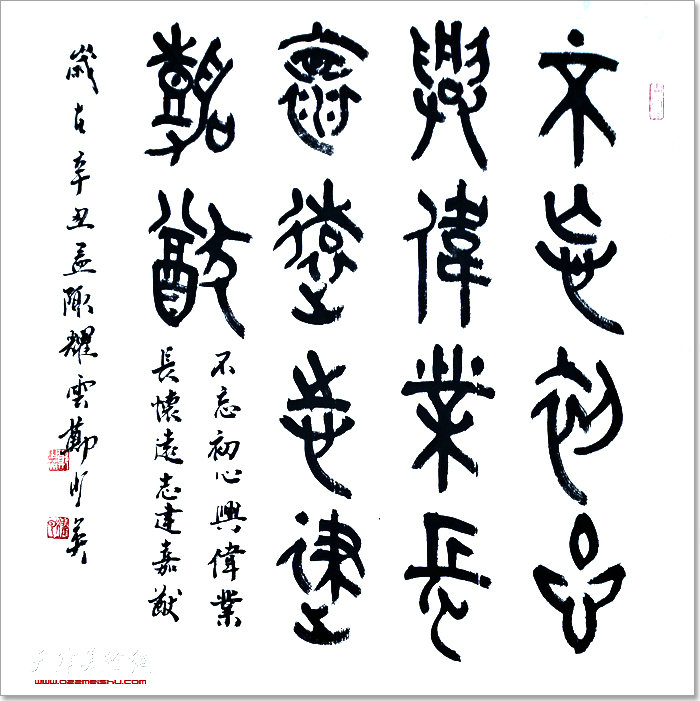 不忘初心
興偉業長
懷遠志建
嘉猷
不忘初心興偉業
長懷遠志建嘉猷
歲在辛丑孟陬耀雲鄭少英
天津美術網
WWW.022MEISHU.COM